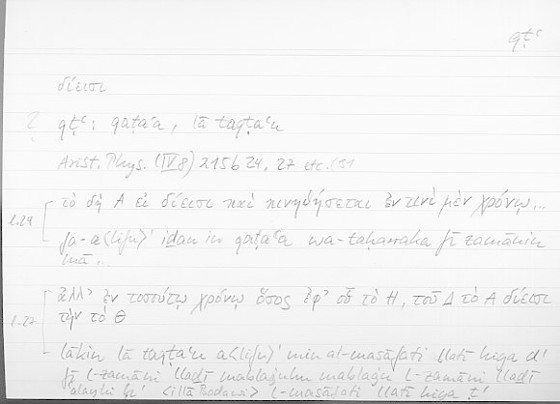 qṭʿ
δίεισι
? qṭʿ: qaṭaʿa, lā taqṭaʿu
Arist. Phys. (IV 8) 215b 24, 27 etc.
l.24 τὸ δὴ Α εἰ δίεισι καὶ κινηθήσεται ἐν τινὶ μὲν χρόνῳ...
fa-a<lifu>ʾ iḏan in qaṭaʿa wa-taḥarraka fī zamānin
mā..
l.27 ἀλλ' ἐν τοσούτῳ χρόνῳ ὅσος ἐφ' οὗ τὸ Η, τοῦ Δ τὸ Α δίεισι
τὴν τὸ Θ
lākin lā taqṭaʿu a<lifu>ʾ min al-masāfati llatī hiya dʾ
fī l-zamāni llaḏī mablaġuhu mablaġu l-zamāni llaḏī
ʿalayhi l-masāfati llatī hiya ṭʾ